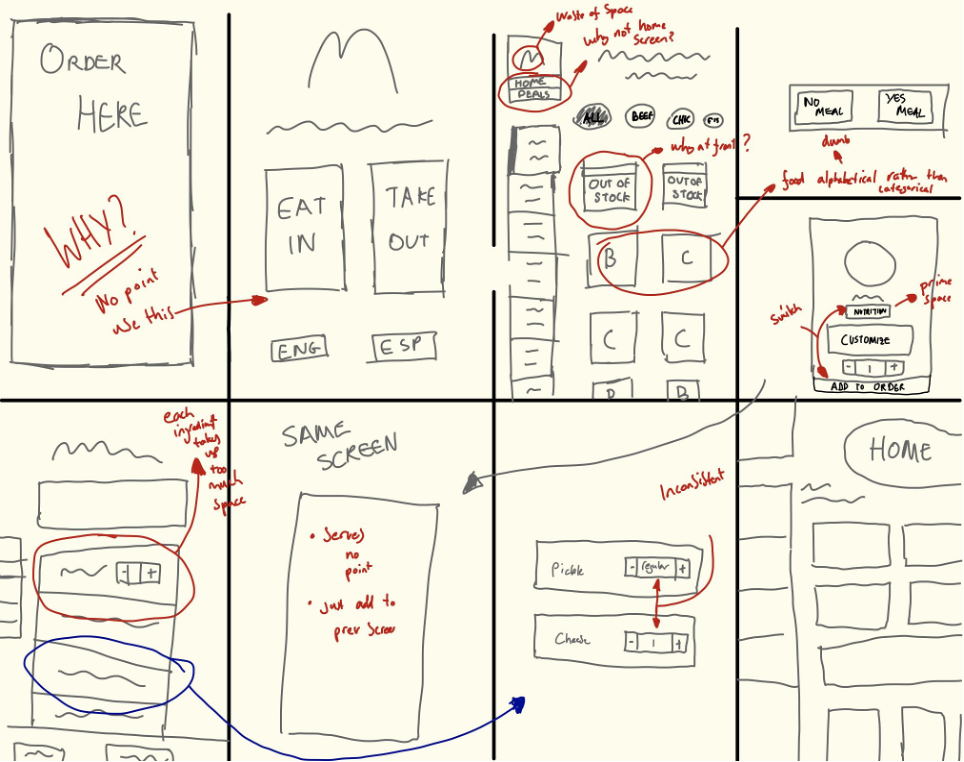 ORDER
HERE
WHY?
No point
use this
EAT
IN
TAKE
OUT
ENG
ESP
Waste of Space
why not home
screen?
HOME
DEALS
ALL
BEEF
CHK
why at front?
OUT OF
STOCK
OUT OF
STOCK
B
C
C
C
D
B
NO
MEAL
YES
MEAL
dumb
food alphabetical rather than
categorical
prime
space
NUTRITION
Switch
CUSTOMIZE
- 1 +
ADD TO ORDER
each
ingredient
takes
up
too
much
space
+
SAME
SCREEN
• Serves
no
point
• Just add to
prev screen
Inconsistent
Pickle
- regular +
Cheese
- 1 +
HOME